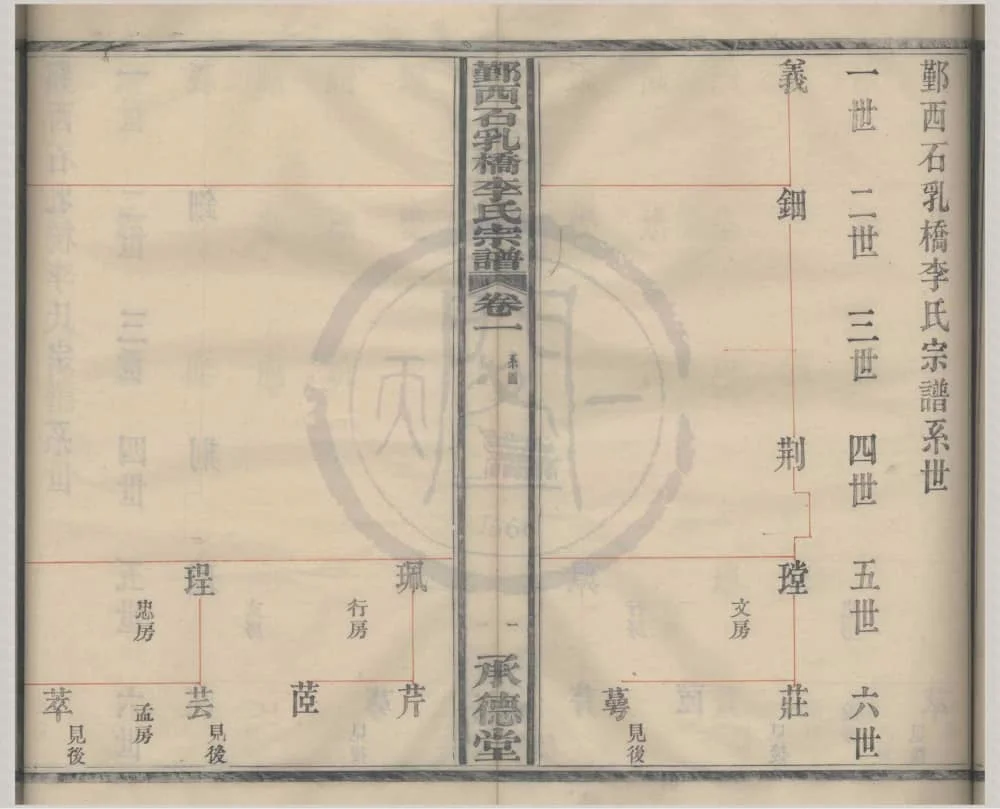 鄞西石乳橋李氏宗譜系世
一世
二世
三世
四世
五世
六世
義
鈿
荆
瑝
莊
文房
見後
鄞西石乳橋李氏宗譜
卷一
系圖
一
承德堂
珮
芹
行房
茝
珵
芸
見後
忠房
孟房
萃
見後